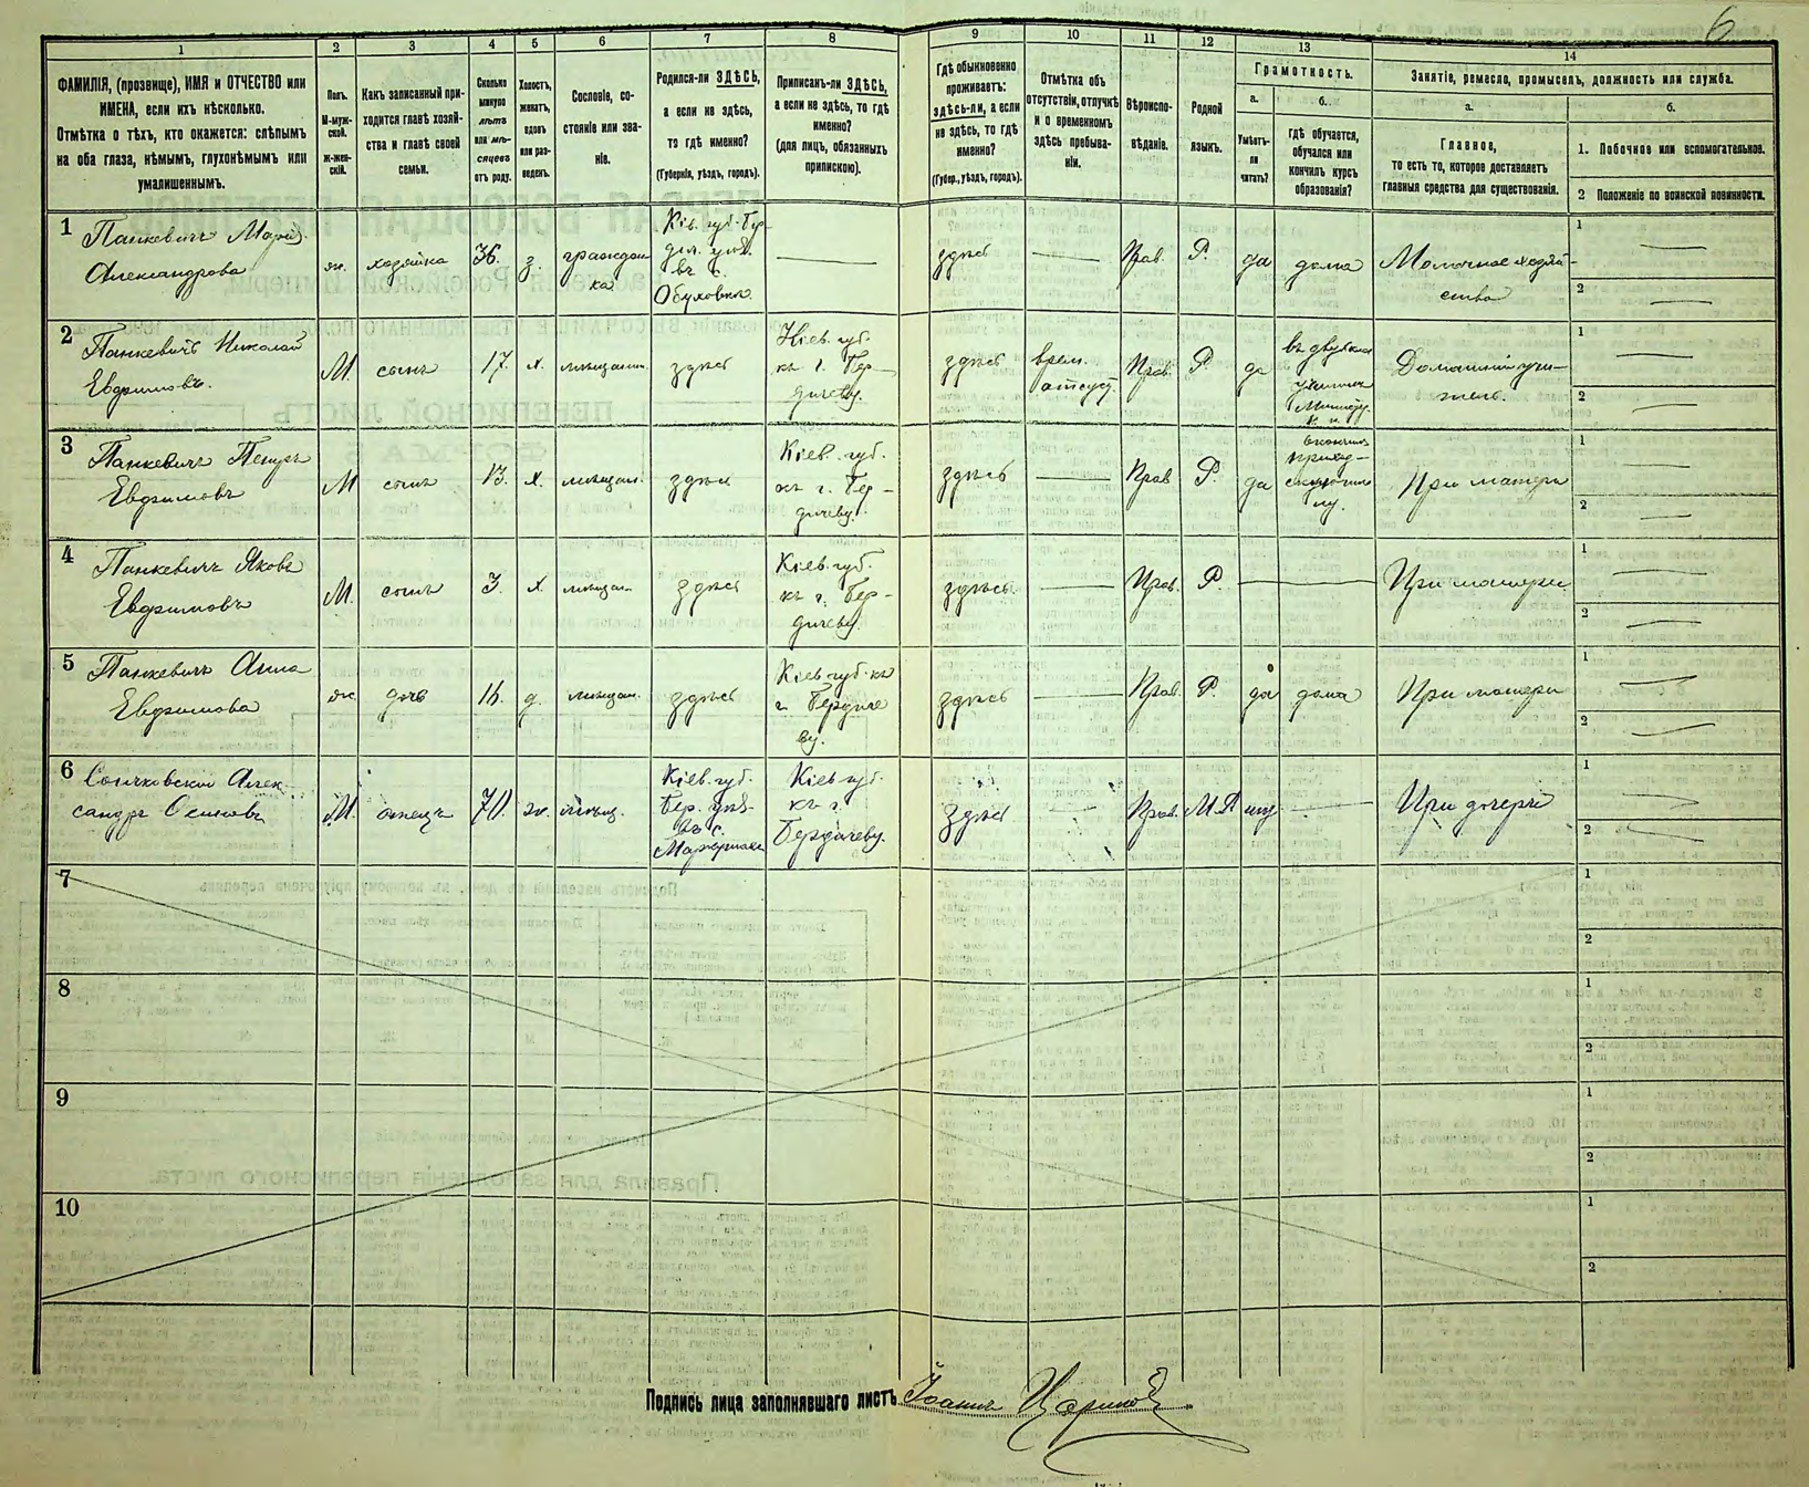 6
1
2
3
4
5
6
7
8
9
10
11
12
13
14
ФАМИЛІЯ, (прозвище), ИМЯ и ОТЧЕСТВО или
ИМЕНА, если ихъ нѣсколько.
Отмѣтка о тѣхъ, кто окажется: слѣпымъ
на оба глаза, нѣмымъ, глухонѣмымъ или
умалишеннымъ.
Полъ.
М-муж-
ской.
Ж-жен-
скій.
Какъ записанный при-
ходится главѣ хозяй-
ства и главѣ своей
семьи.
Сколько
минуло
лѣтъ
или мѣ-
сяцевъ
отъ роду.
Холостъ,
женатъ,
вдовъ
или раз-
веденъ.
Сословіе, со-
стояніе или зва-
ніе.
Родился-ли ЗДѢСЬ,
а если не здѣсь,
то гдѣ именно?
(Губернія, уѣздъ, городъ).
Приписанъ-ли ЗДѢСЬ,
а если не здѣсь, то гдѣ
именно?
(для лицъ, обязанныхъ
припискою).
Гдѣ обыкновенно
проживаетъ:
здѣсь-ли, а если
не здѣсь, то гдѣ
именно?
(Губер., уѣздъ, городъ).
Отмѣтка объ
отсутствіи, отлучкѣ
и о временномъ
здѣсь пребыва-
ніи.
Вѣроиспо-
вѣданіе.
Родной
языкъ.
Грамотность.
а.
Умѣетъ-
ли
читать?
б.
гдѣ обучается,
обучался или
кончилъ курсъ
образованія?
Занятіе, ремесло, промыселъ, должность или служба.
а.
Главное,
то есть то, которое доставляетъ
главныя средства для существованія.
б.
1. Побочное или вспомогательное.
2 Положеніе по воинской повинности.
1
Панкевичъ Марія
Александрова
ж.
хозяйка
36.
з.
граждан
ка
Кіев. губ. Бер-
дич. уѣз.
въ с.
Обуховка
здѣсь
Прав.
Р.
да
дома
Молочное хозяй-
ство
1
2
2
Панкевичъ Николай
Евфимовъ.
М.
сынъ
17.
х.
мѣщанин.
здѣсь
Кіев. губ.
къ г. Бер-
дичеву.
здѣсь
врем.
отсут.
Прав.
Р
да
въ двухкл.
училищ
Домашній учи-
тель.
1
2
3
Панкевичъ Петръ
Евфимовъ
М
сынъ
13.
х.
мѣщан.
здѣсь
Кіев. губ.
къ г. Бер-
дичеву.
здѣсь
Прав
Р.
да
При матери
1
2
4
Панкевичъ Яковъ
Евфимовъ
М.
сынъ
3.
х
мѣщан.
здѣсь
Кіев. губ.
къ г. Бер-
дичеву.
здѣсь.
Прав.
Р.
При матери
1
2
5
Панкевичъ Анна
Евфимова
ж.
дочь
16.
д.
мѣщан.
здѣсь
Кіев. губ. къ
г. Бердиче
ву.
здѣсь
Прав.
Р.
да
дома
При матери
1
2
6
Алек-
сандръ
М.
отецъ
70.
ж.
мѣщ.
Кіев. губ.
Бер. уѣз.
въ с.
Кіев губ.
къ г.
Бердичеву.
здѣсь
Прав.
М.Р.
При дочери
1
2
7
1
2
8
1
2
9
1
2
10
1
2
Подпись лица заполнявшаго листъ Іоаннъ